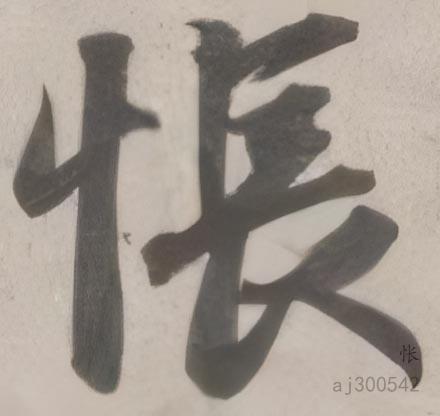 悵
怅
aj300542